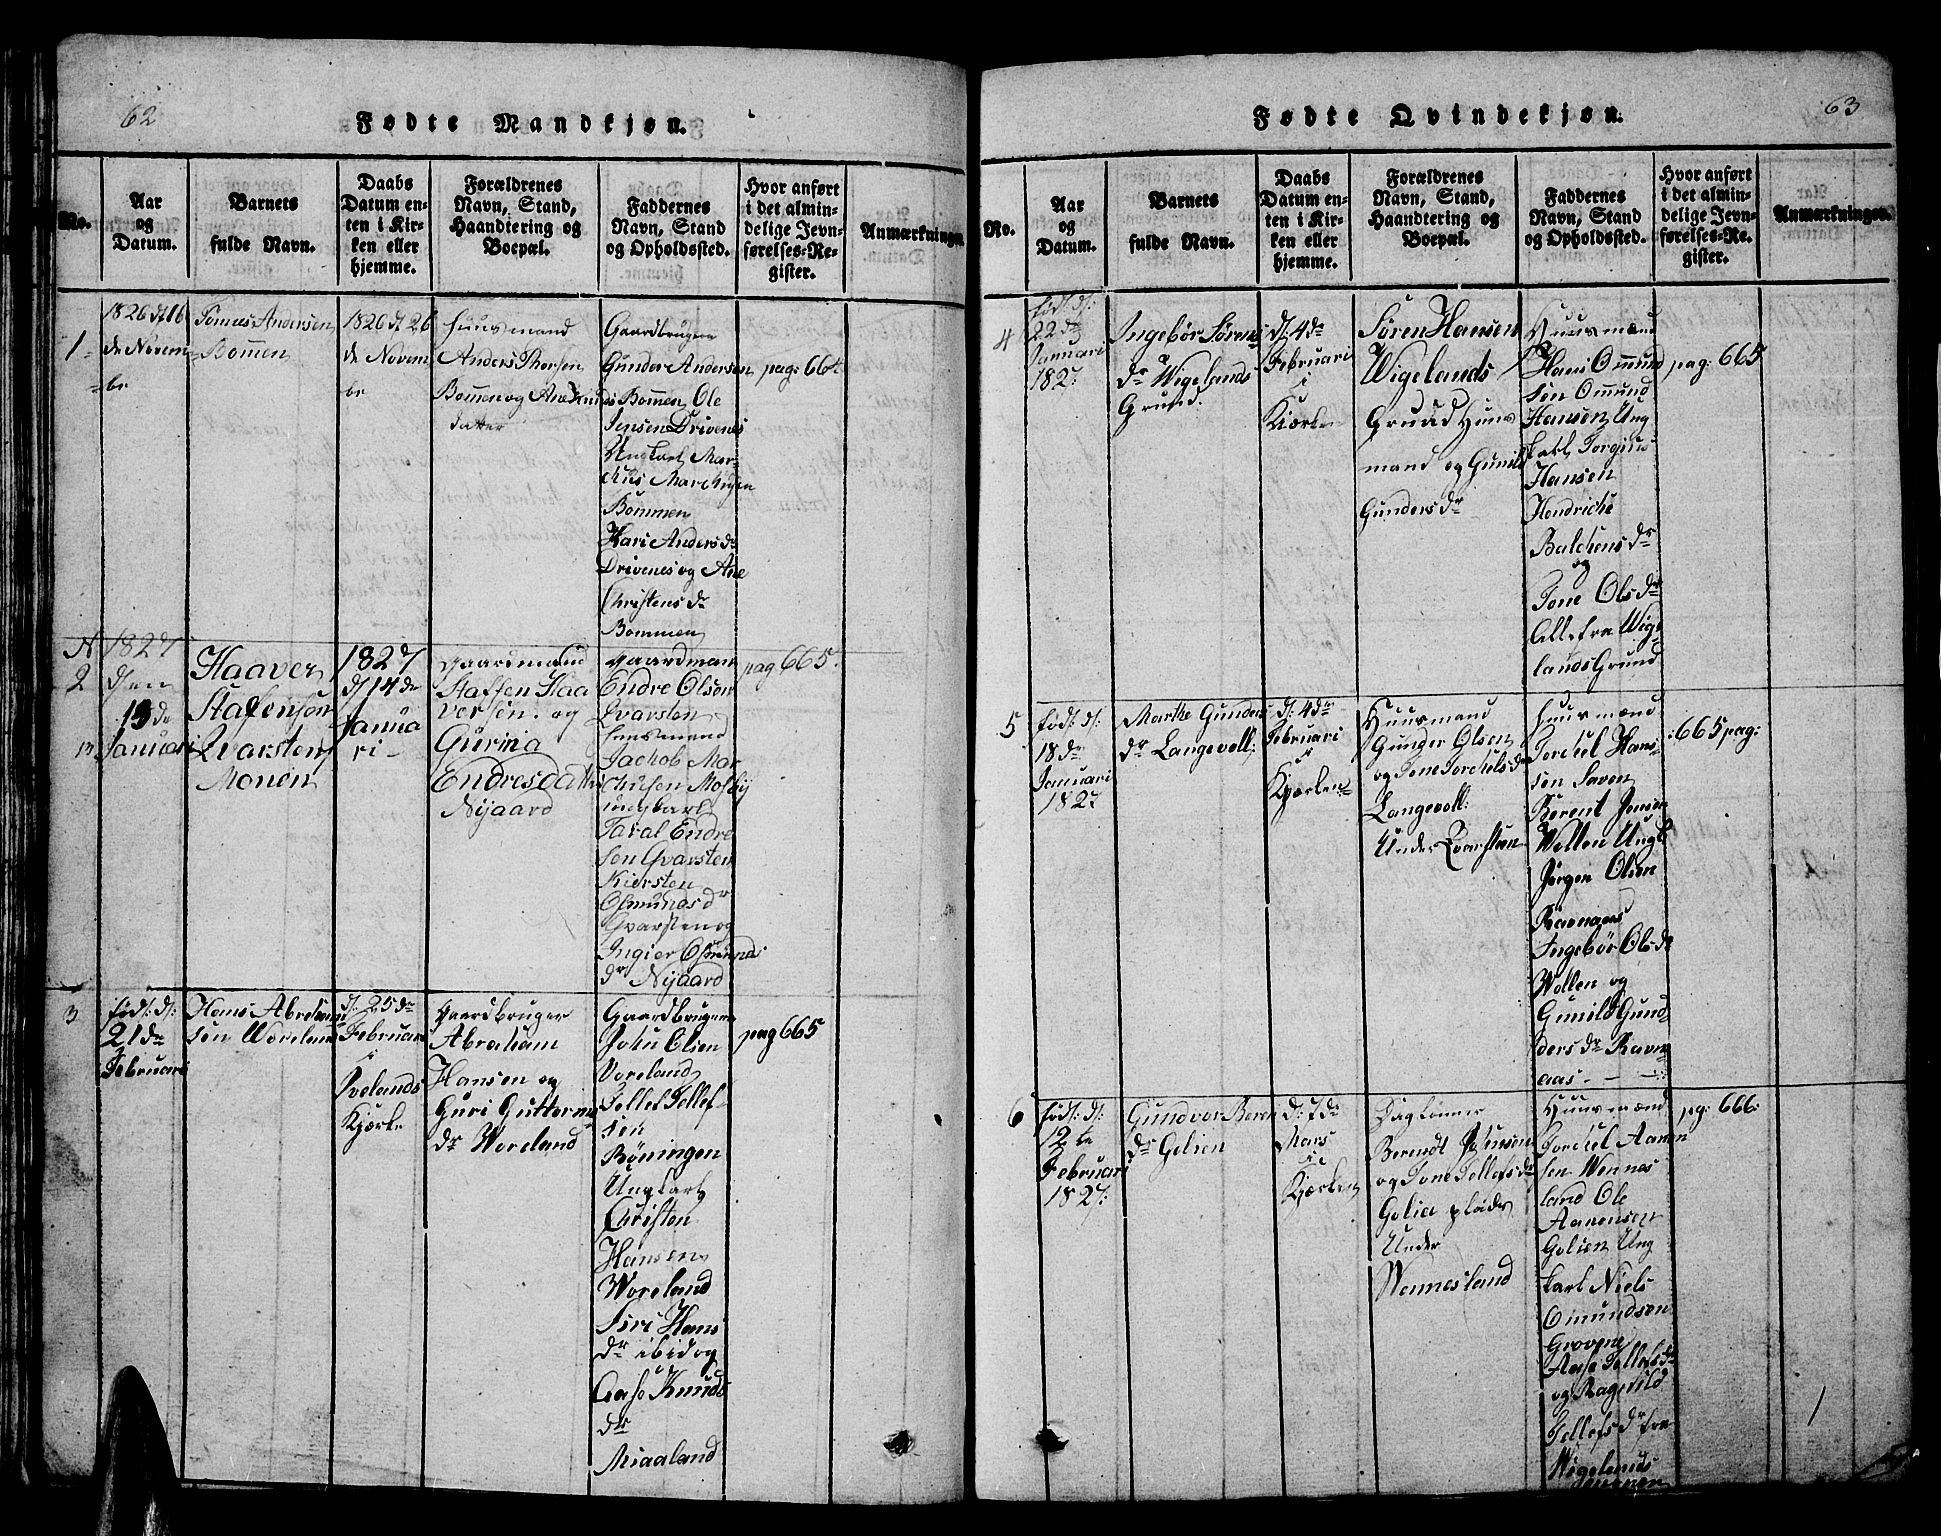 62
Fødte Mandkjøn.
No.
Aar
og
Datum.
Barnets
fulde Navn.
Daabs
Datum en-
ten i Kir-
ken eller
hjemme.
Forældrenes
Navn, Stand,
Haandtering og
Boepæl.
Faddernes
Navn, Stand
og Opholdssted.
Hvor anført
i det almin-
delige Jevn-
førelses-Re-
gister.
Anmærkninger.
1
1826 d 16
de Novem
be
Tomas Andersen
Bommen
1826 d 26
de Novem
be
Huusmand
Anders Thorsen
Bommen og Ane Knuds
datter
Gaardbrugere
Gunder Andersen
Bommen Ole
Jensen Drivenes
Ungkarl Mar
chus Marchusen
Bommen
Kari Andersdr
Drivenes og Ane
Christensdr
Bommen
pag: 664
N
2
1827
den
13de
Januari
Haaver
Stafensøn
Qvarsten
Monen
1827
d 14de
Janua
ri
gaardmand
Staffen Haa
versen og
Guruna
Endresdatter
Nÿaard
gaardman
Endre Olsen
Qvarsten
huusmand
Jachob Mar
chusen Mosby
ungkarl
Taral Endre
sen Qvarsten
Kiersten
Osmunds dr
Qvarsten og
Ingier Osmunds
dr Nÿaard
pag 665
3
fød: d:
21de
Februari
Hans Abraham
sen Woreland
d: 25de
Februari
i
Ivelands
Kjærke
Gaardbruger
Abraham
Hansen og
Guri Guttorms
dr Woreland
Gaardbrugere
John Olsen
Voreland
Tellef Tellef
sen
Røningen
Ungkarl
Christen
Hansen
Woreland
Siri Hans
dr ibid og
Aase Knuds
dr
Miaaland
pag 665
63
Fødte Qvindekjøn.
No.
Aar
og
Datum.
Barnets
fulde Navn.
Daabs
Datum en-
ten i Kir-
ken eller
hjemme.
Forældrenes
Navn, Stand,
Haandtering og
Boepæl.
Faddernes
Navn, Stand
og Opholdssted.
Hvor anført
i det almin-
delige Jevn-
førelses-Re-
gister.
Anmærkninger.
4
fød: d:
22de
Januari
1827
Ingebør Sørens
dr Wigelands
Grund
d: 4de
Februari
i
Kiærken
Søren Hansen
Wigelands
Gruad Huus
mand og Gunild
Gunders dr
Huusmænd
Hans Ommund
sen Omund
Hansen Ung
karl Torgius
Hansen
Hendriche
Balchens dr
og
Tone Ols dr
Alle fra Wige
lands Grund
pag: 665
5
fød: d:
18de
Januari
1827
Marthe Gunders
dr Langevoll:
d: 4de
Februari
i
Kjærken
Huusmand
Gunder Olsen
og Tone Torchels dr
Langevoll:
Under Qvarsten
Huusmænd
Torkel Han-
sen Saven
Berent Jensen
Wollen Ungk
Jørgen Olsen
Ravnaas
Ingebør Ols dr
Wollen og
Gunild Gun-
ders dr Ravn
aas - - -
665 pag:
6
fød: d:
12te
Februari
1827:
Gundvor Beren
dr Golien
d: 7de
Mars
i
Kjærken
Daglønner
Berendt Johnsen
og Tone Tellefs dr
Golia plads
Under
Wennesland
Huusmænd
Torchel Aanen
sen Wennes
land Ole
Aanensen
Golien Ung
karl Niels
Omundsen
Grovene
Aase Tellefs dr
og Ragnild
Tellefs dr fra
Wigelands
pag: 666: